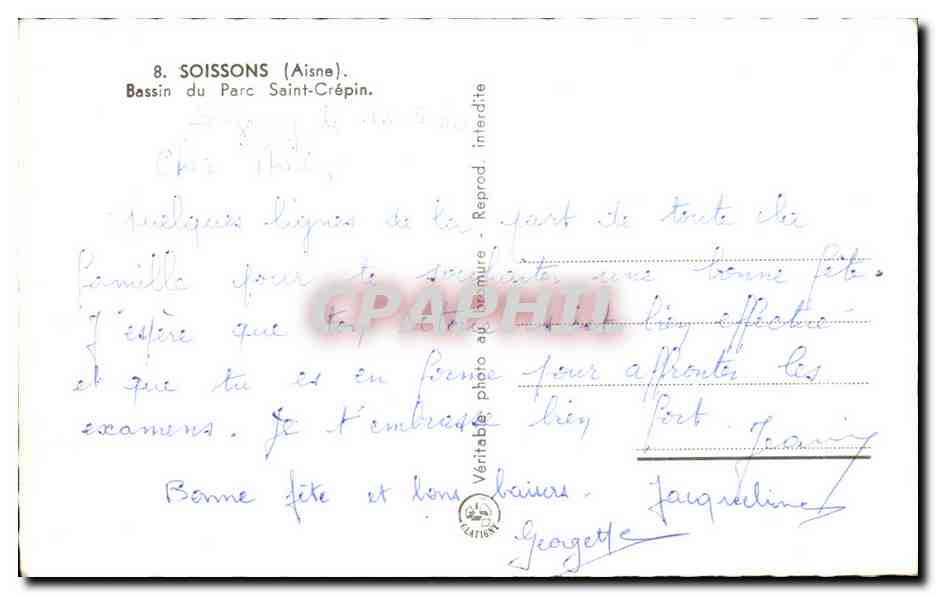 8. SOISSONS (Aisne).
Bassin du Parc Saint-Crépin.
Quelques lignes de la part de toute la
famille pour te souhaiter une bonne fête.
J'espère que ton s'est bien effectué
et que tu es en forme pour affronter les
examens. Je t'embrasse bien fort.
Bonne fête et bons baisers. Jacqueline
Georgette
Véritable photo au bromure - Reprod. interdite
CLATIGNY
CPAPHIL